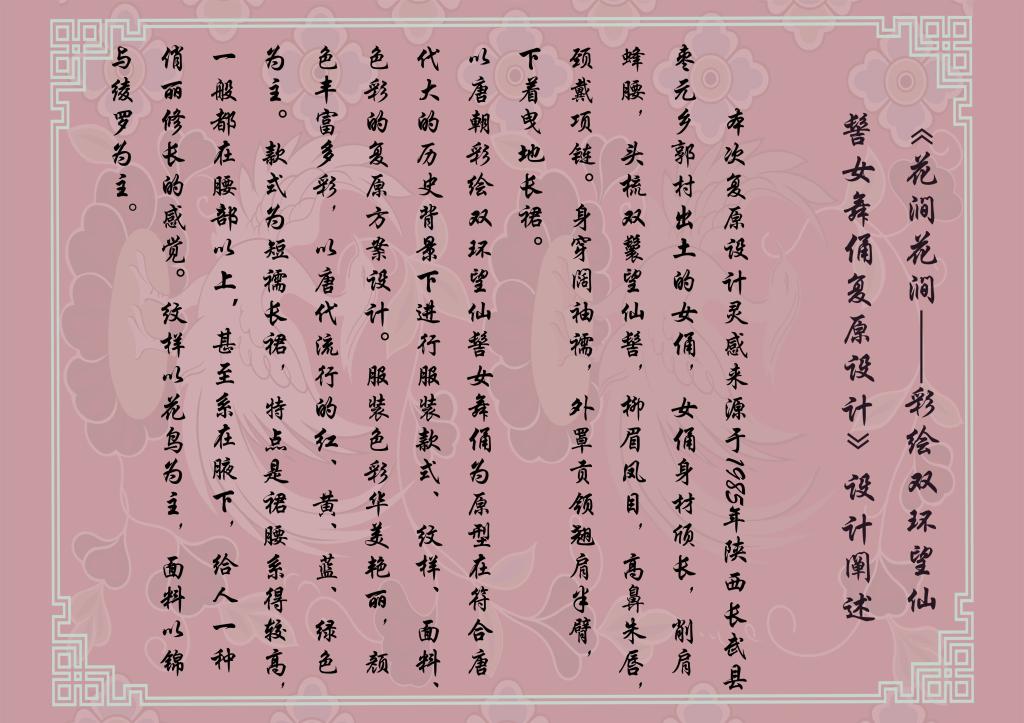 《花涧花涧——彩绘双环望仙
髻女舞俑复原设计》设计阐述
本次复原设计灵感来源于1985年陕西长武县
枣元乡郭村出土的女俑，女俑身材颀长，削肩
蜂腰，头梳双鬟望仙髻，柳眉凤目，高鼻朱唇，
颈戴项链。身穿阔袖襦，外罩贡领翘肩半臂，
下着曳地长裙。
以唐朝彩绘双环望仙髻女舞俑为原型在符合唐
代大的历史背景下进行服装款式、纹样、面料、
色彩的复原方案设计。服装色彩华美艳丽，颜
色丰富多彩，以唐代流行的红、黄、蓝、绿色
为主。款式为短襦长裙，特点是裙腰系得较高，
一般都在腰部以上，甚至系在腋下，给人一种
俏丽修长的感觉。纹样以花鸟为主，面料以锦
与绫罗为主。